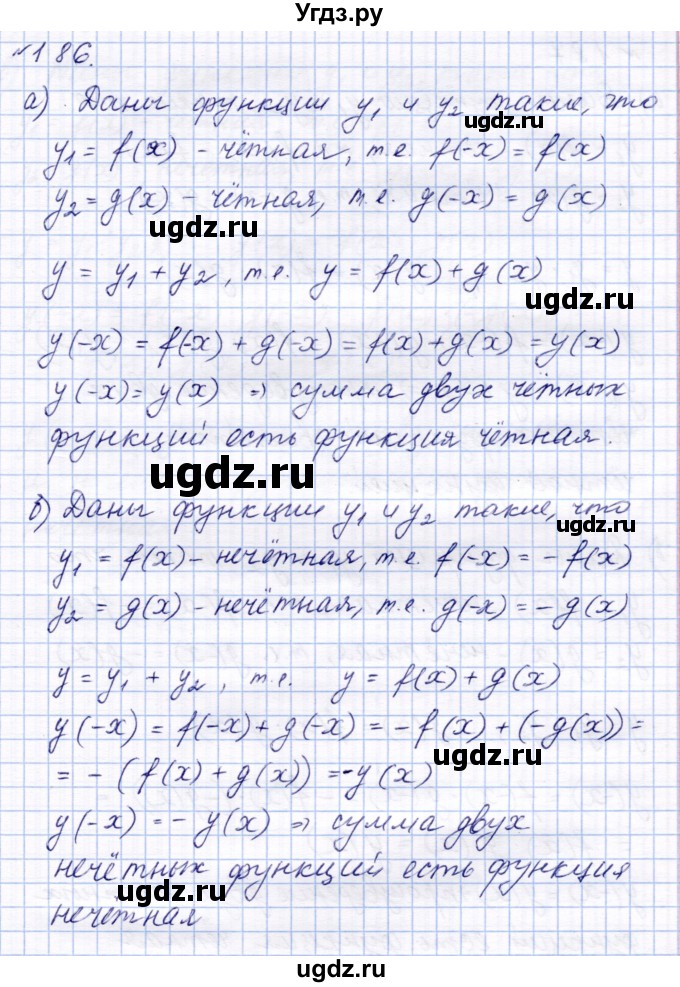 Угдз.ру
№186.
а) Даны функции y₁ и y₂ такие, что
y₁ = f(x) - чётная, т.е. f(-x) = f(x)
y₂ = g(x) - чётная, т.е. g(-x) = g(x).
ugdz.ru
ugdz.ru
y = y₁ + y₂, т.е. y = f(x) + g(x)
ugdz.ru
y(-x) = f(-x) + g(-x) = f(x) + g(x) = y(x)
ugdz.ru
y(-x) = y(x) ⇒ сумма двух чётных
функций есть функция чётная.
ugdz.ru
б) Даны функции y₁ и y₂ такие, что
ugdz.ru
y₁ = f(x) - нечётная, т.е. f(-x) = - f(x)
y₂ = g(x) - нечётная, т.е. g(-x) = - g(x)
ugdz.ru
y = y₁ + y₂, т.е. y = f(x) + g(x)
y(-x) = f(-x) + g(-x) = - f(x) + (-g(x)) =
ugdz.ru
= - (f(x) + g(x)) = -y(x)
y(-x) = - y(x) ⇒ сумма двух
нечётных функций есть функция
ugdz.ru
нечётная
ugdz.ru